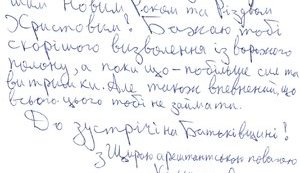 шим Новим Роком та Різдвом
Христовим! Бажаю тобі
скорішого визволення із ворожого
полону, а поки що – побільше сил та
витримки. Але також впевнений, що
всього цього тобі не займати.
До зустрічі на Батьківщині!
З щирою арештантською повагою